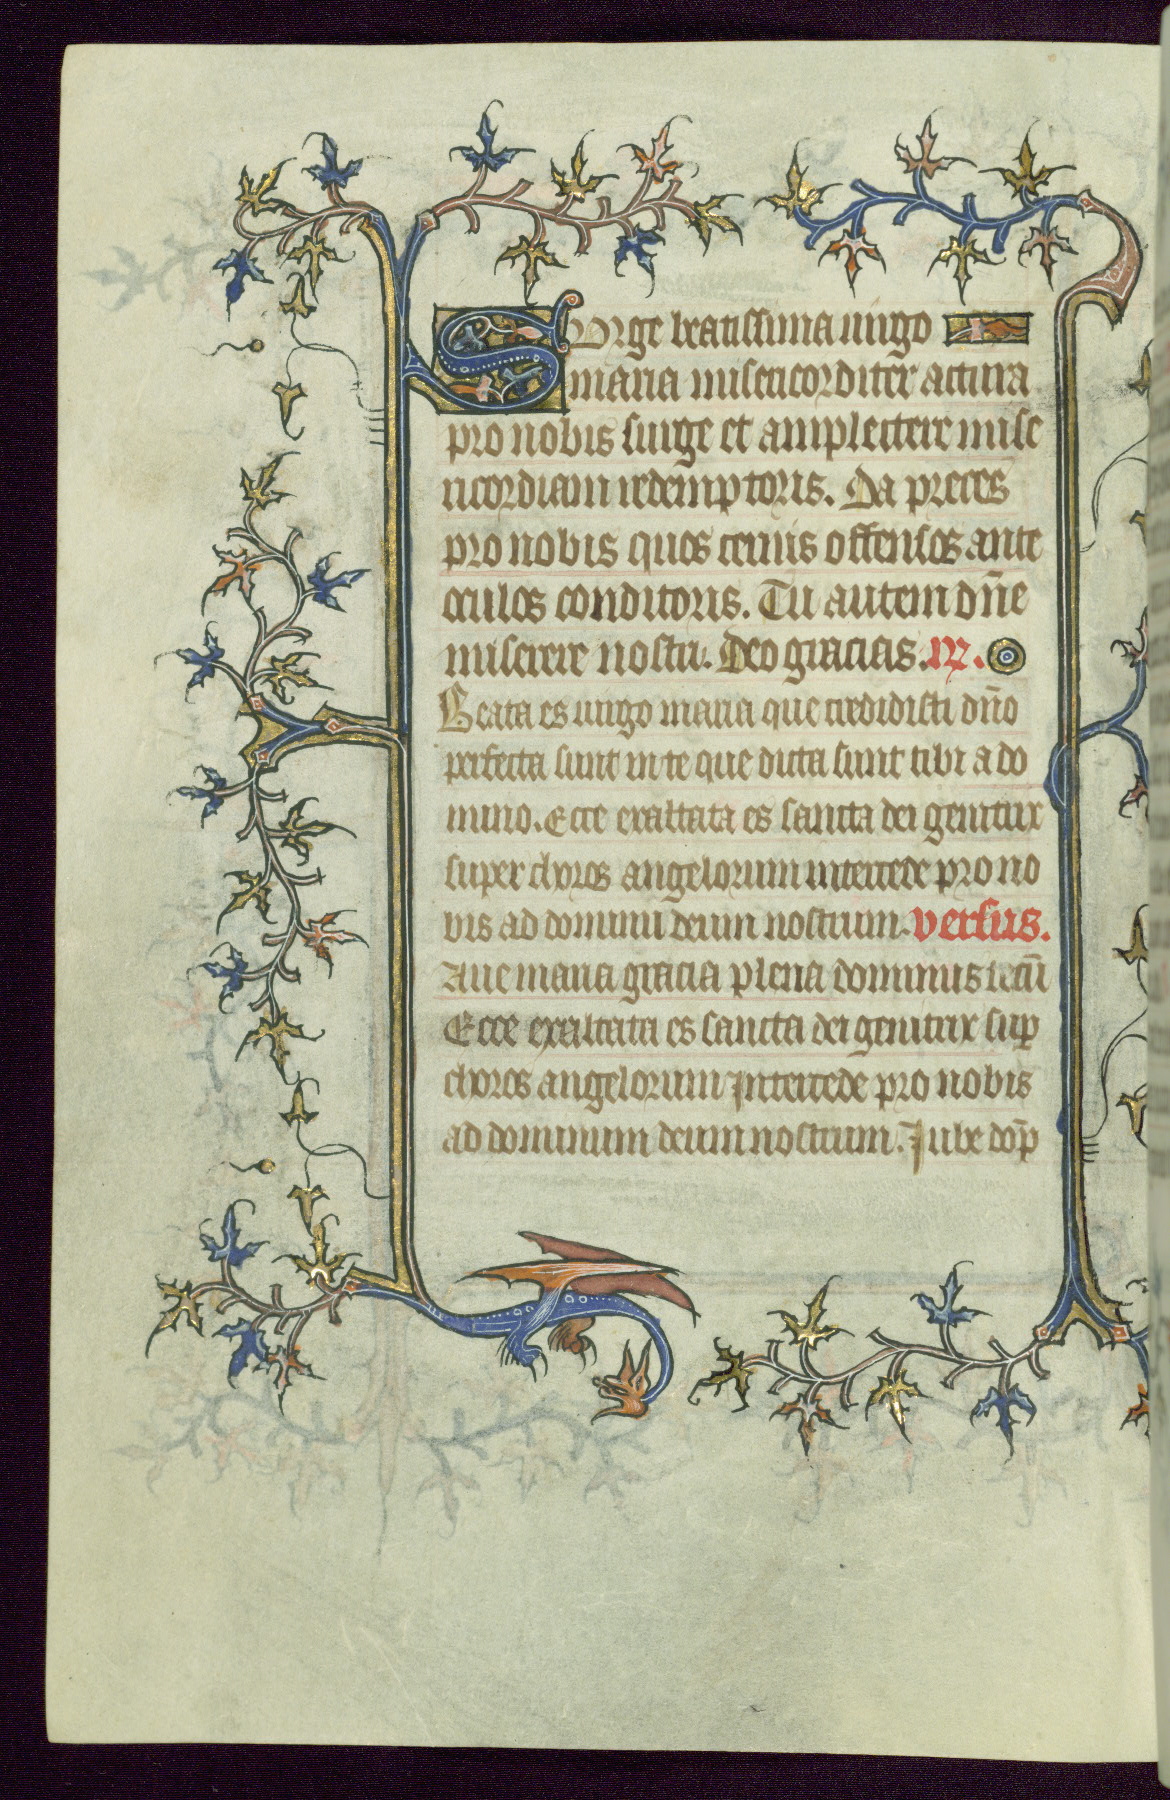 Surge beatissima uirgo
maria misericorditer actura
pro nobis surge et amplectere mise
ricordiam redemptoris. Da preces
pro nobis quos cernis offensos ante
oculos conditoris. Tu autem dn̄e
miserere nostri. Deo gracias. R̸.
Beata es uirgo maria que credidisti dn̄o
perfecta sunt in te que dicta sunt tibi a do
mino. Ecce exaltata es sancta dei genitrix
super choros angelorum intercede pro no
bis ad dominū deum nostrum. versus.
Aue maria gracia plena dominus tecū
Ecce exaltata es sancta dei genitrix sup̄
choros angelorum Intercede pro nobis
ad dominum deum nostrum. Iube dop̄